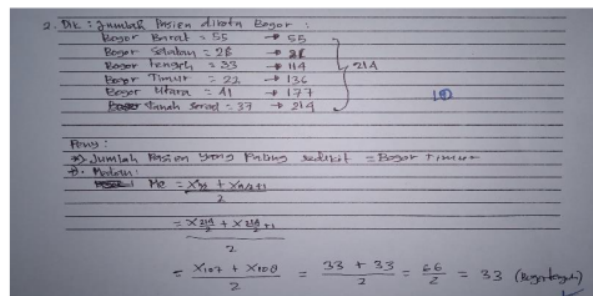 2. Dik : Jumlah Pasien dikota Bogor :
Bogor Barat = 55 → 55
Bogor Selatan = 26 → 81
Bogor Tengah = 33 → 114
Bogor Timur = 22 → 136
Bogor Utara = 41 → 177
Tanah Sereal = 37 → 214
214
10
Peny :
*) Jumlah Pasien yang Paling sedikit = Bogor Timur
*). Median :
Me = X n/2 + X n/2+1
2
= X 214/2 + X 214/2 +1
2
= X107 + X108 / 2 = 33 + 33 / 2 = 66 / 2 = 33 (Bogor tengah)